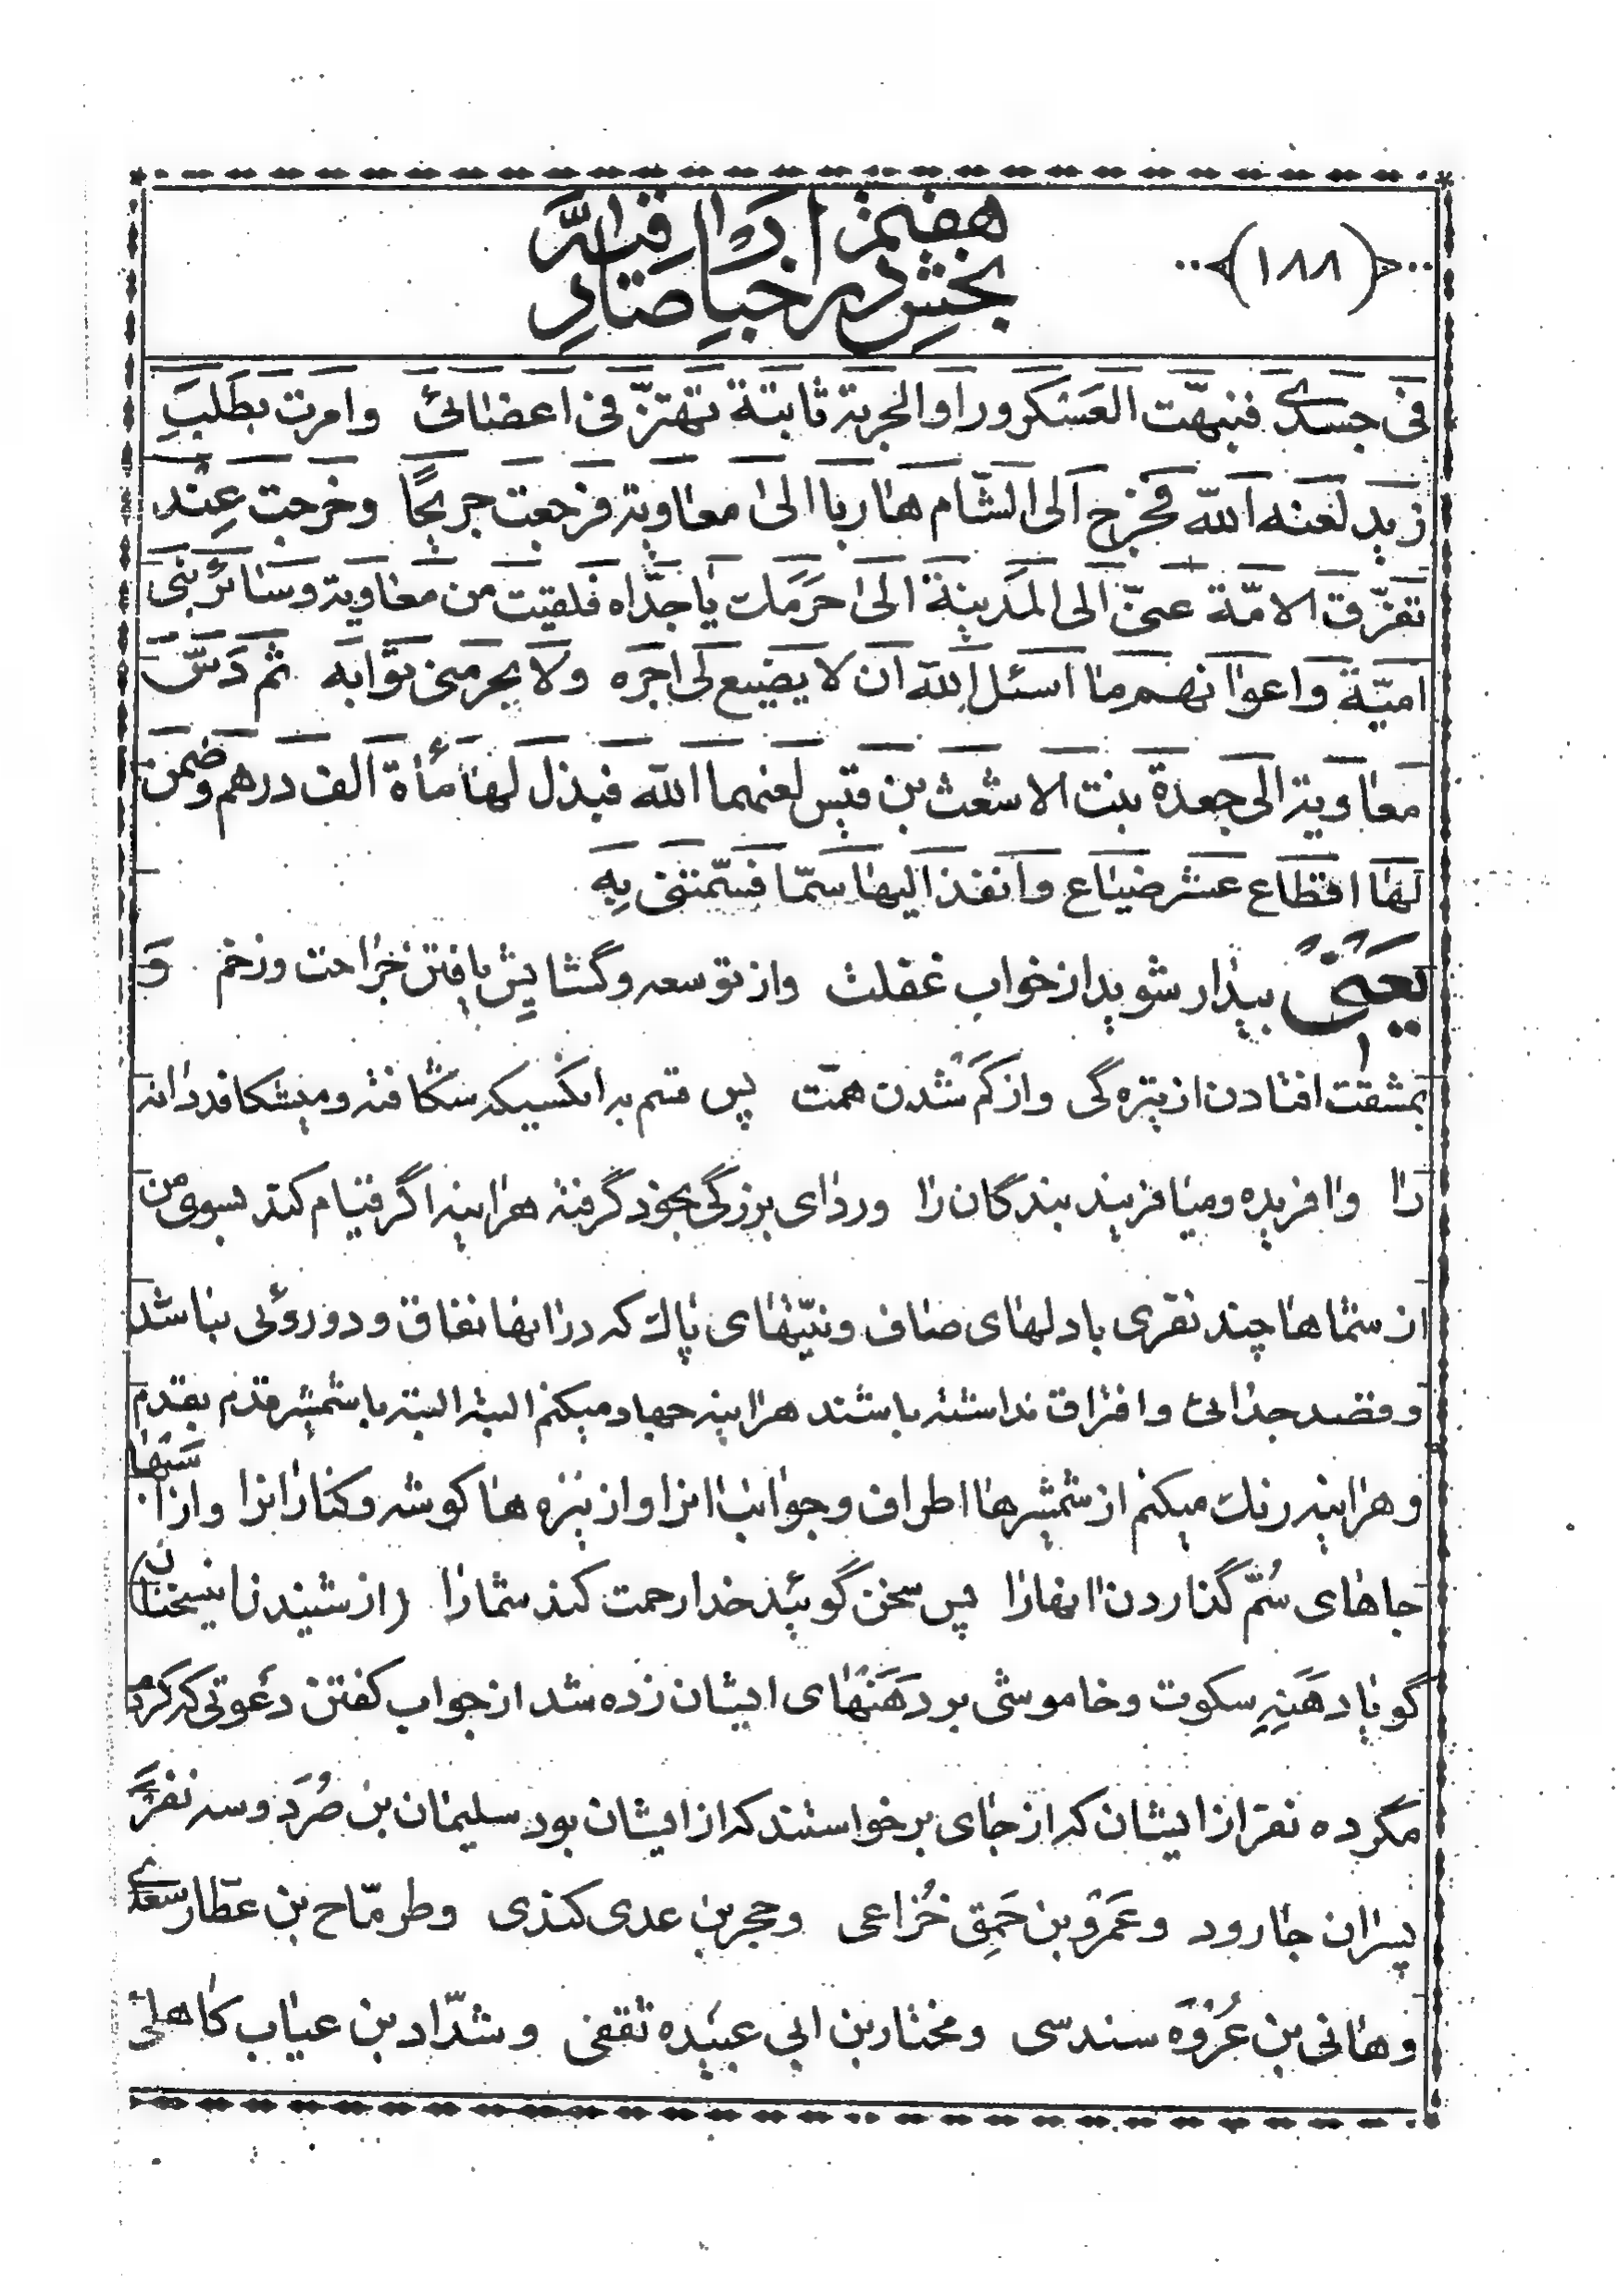 (١٨٨)
بخش هفتم در اخبار صادقه
فی جسدی فنبهّت العسکر ورأوا الحربة ثابتة تهتزّ فی اعضائی وامرت بطلب
زید لعنه اللّه فخرج الی الشّام هاربا الی معاویة فرجعت جریحًا وخرجت عند
تفرّق الامّة عنّی الی المدینة الی حرمك یا جدّاه فلقیت من معاویة وسائر بنی
امیّة واعوانهم ما اسئل اللّه ان لا یضیع لی اجره ولا یحرمنی ثوابه ثم دسّ
معاویة الی جعدة بنت الاشعث بن قیس لعنهما اللّه فبذل لها مأة الف درهم وضمن
لها اقطاع عشر ضیاع وانفذ الیها سمّا فسمّتنی به
یعنی بیدار شوید از خواب غفلت واز توسعه وگشایش یافتن جراحت وزخم و
بمشقت افتادن از تیره گی واز کم شدن همّت پس قسم به انکسیکه شکافته ومیشکافد دانه
را وافریده ومیافریند بندگان را وردای بزرگی بخود گرفته هراینه اگر قیام کند بسوی من
از شماها چند نفری با دلهای صاف ونیّتهای پاك که در انها نفاق ودوروئی نباشد
وقصد جدائی وافتراق نداشته باشند هراینه جهاد میکنم البته البته با شمشیر قدم بقدم
وهراینه رنك میکنم از شمشیرها اطراف وجوانب انرا واز نیزه ها گوشه وکنار انرا واز اسبها
جاهای سُمّ گذاردن انها را پس سخن گوئید خدا رحمت کند شما را (از شنیدن اینسخنان)
گویا دهنهِ سکوت وخاموشی بر دهنهای ایشان زده شد از جواب گفتن دعوتی که کردم
مگر ده نفر از ایشان که از جای برخواستند که از ایشان بود سلیمان بن صُرَد وسه نفر
پسران جارود وعَمرو بن حَمِق خُزاعی وحجر بن عدی کندی وطرمّاح بن عطّار سعدی
وهانی بن عُرْوَه سندسی ومختار بن ابی عبیده ثقفی وشدّاد بن عیاب کاهلی